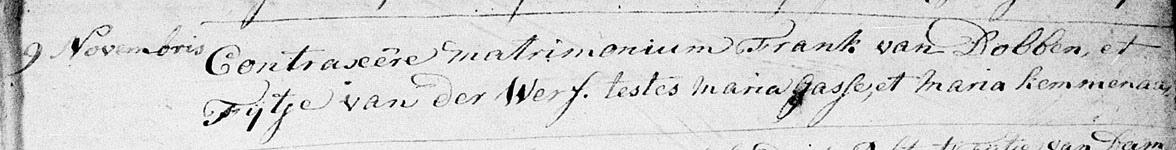 9 Novembris Contraxêre matrimonium Frank van Dobben, et
Fijtje van der Werf. testes Maria Gasse, et Maria Kemmenaa
van Dam